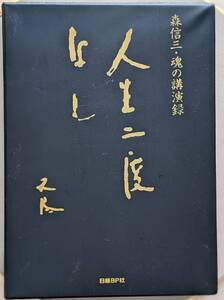 森信三・魂の講演録
人生二度
なし
日経BP社